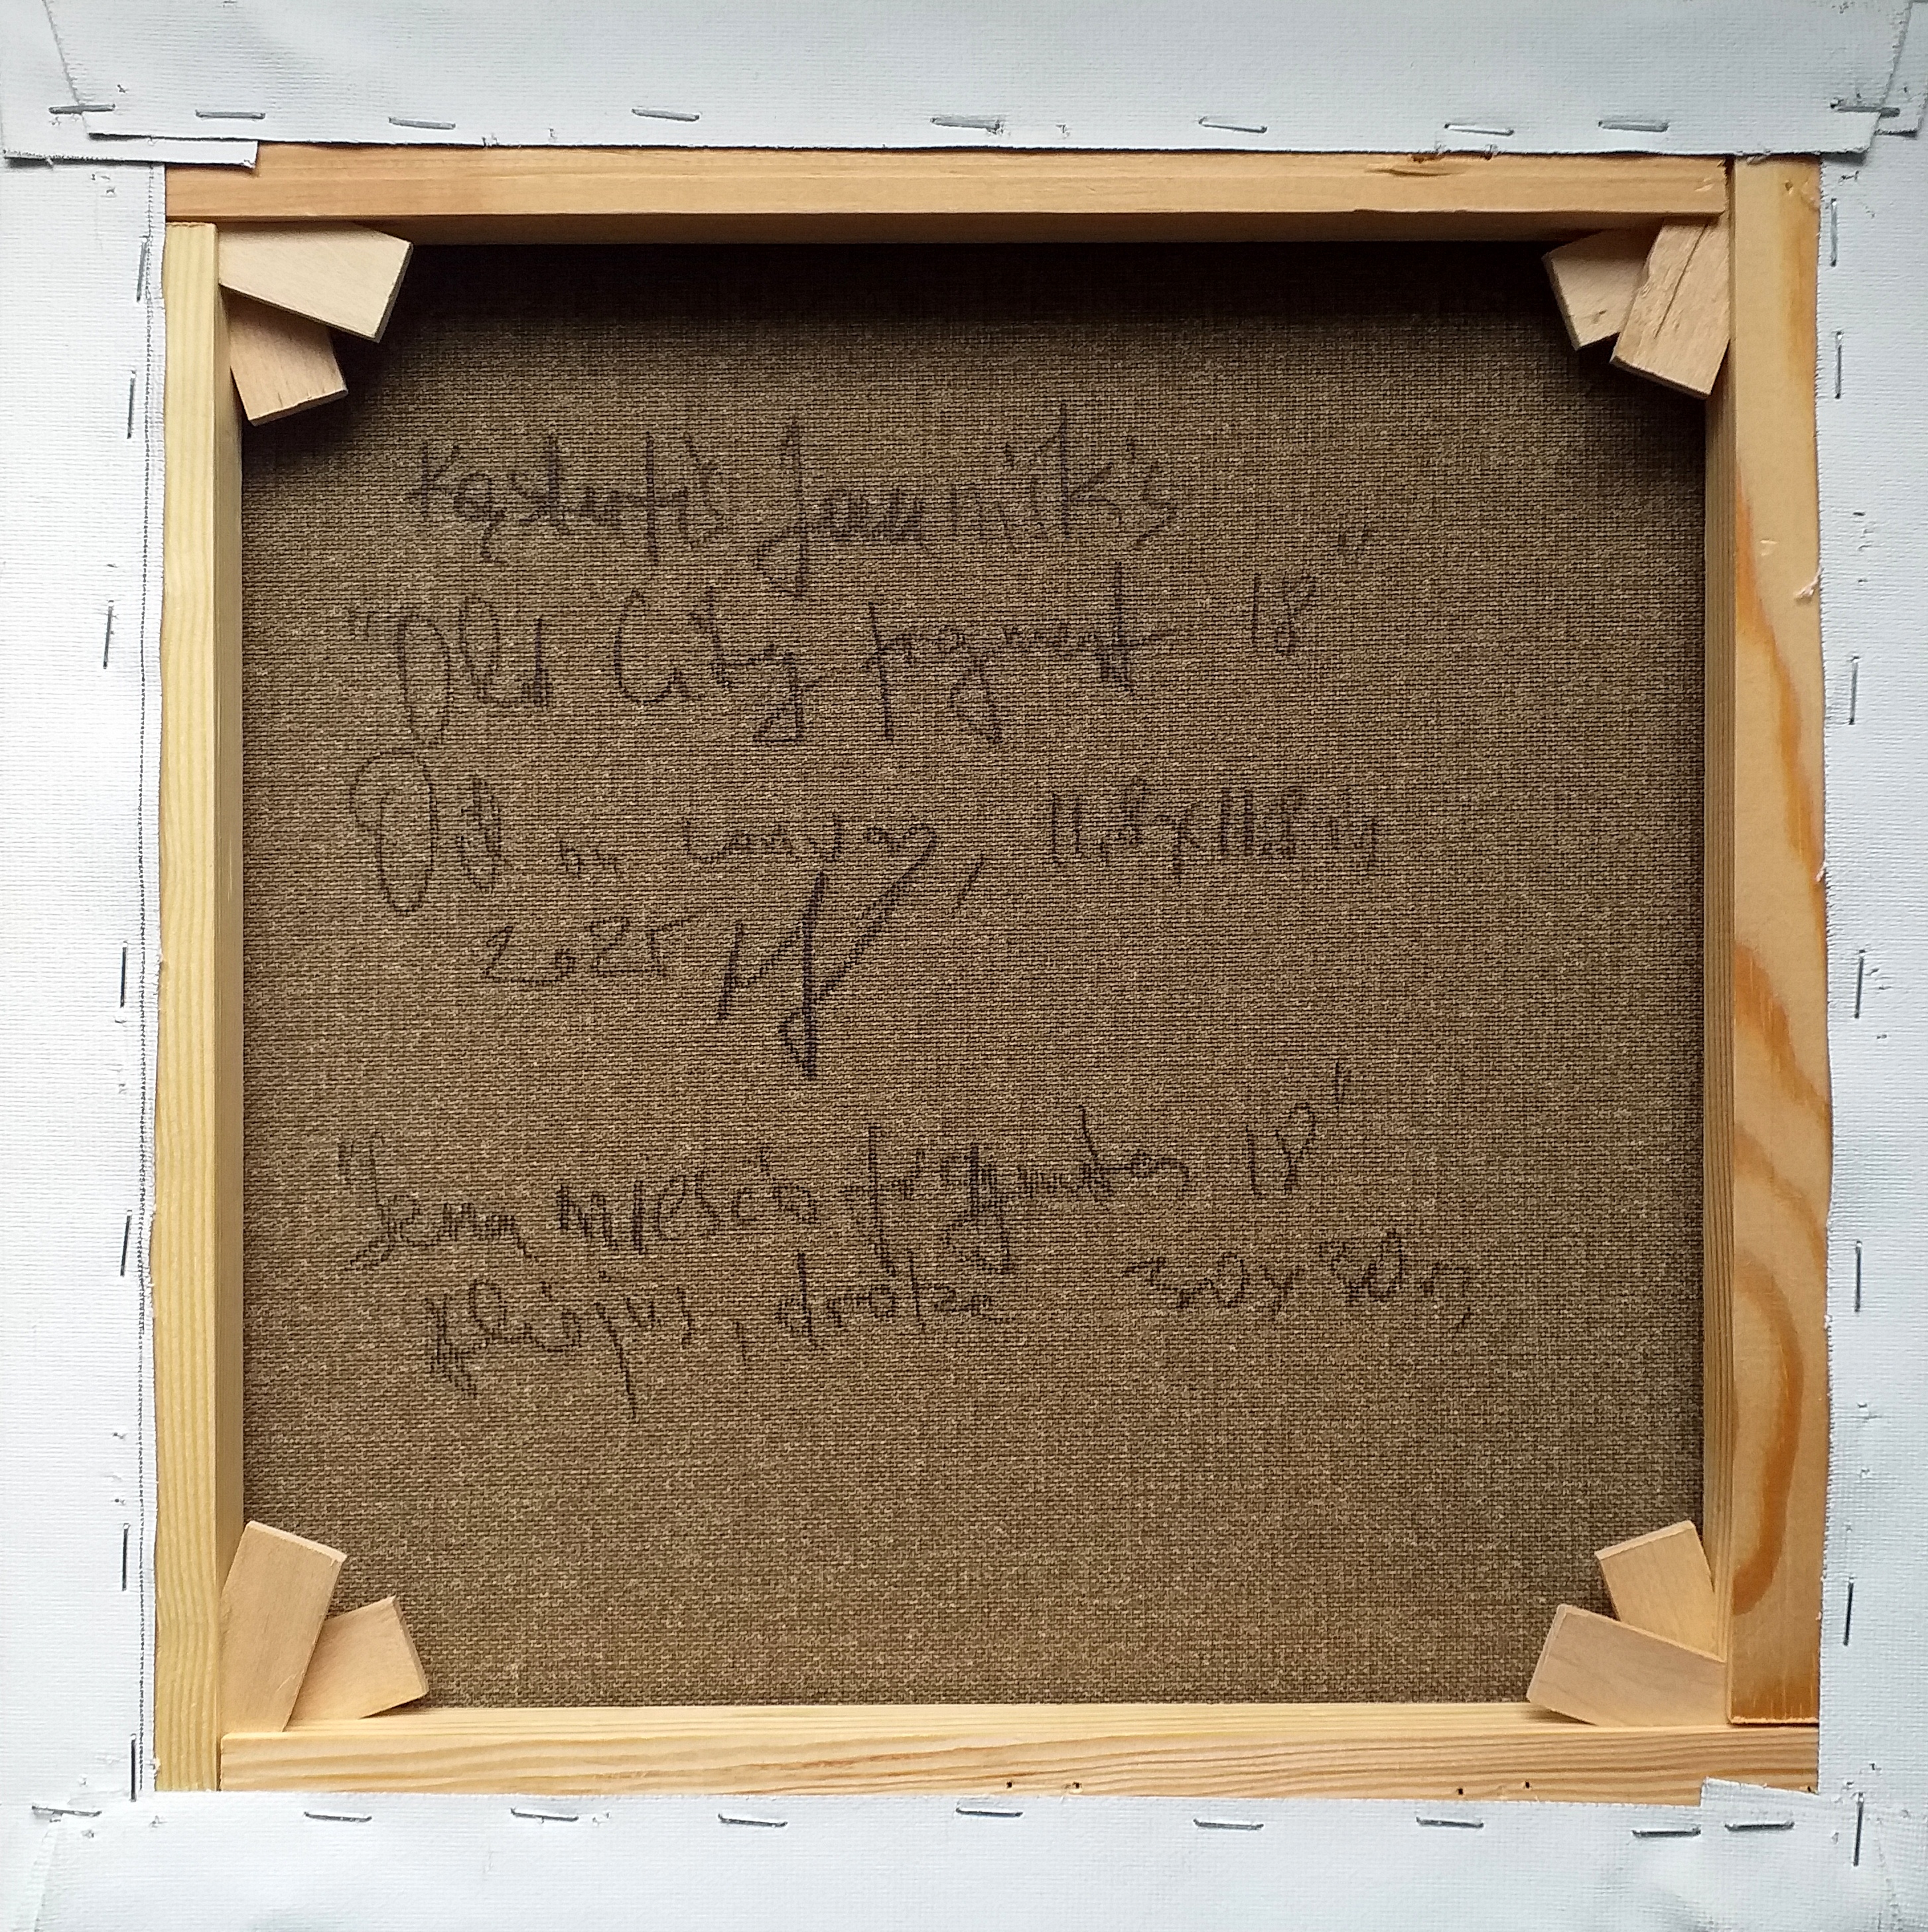 Kęstutis Jauniškis
"Old City fragment 18"
Oil on canvas, 11.8x11.8 in
2025
"Senamiesčio fragmentas 18"
aliejus, drobė 30x30